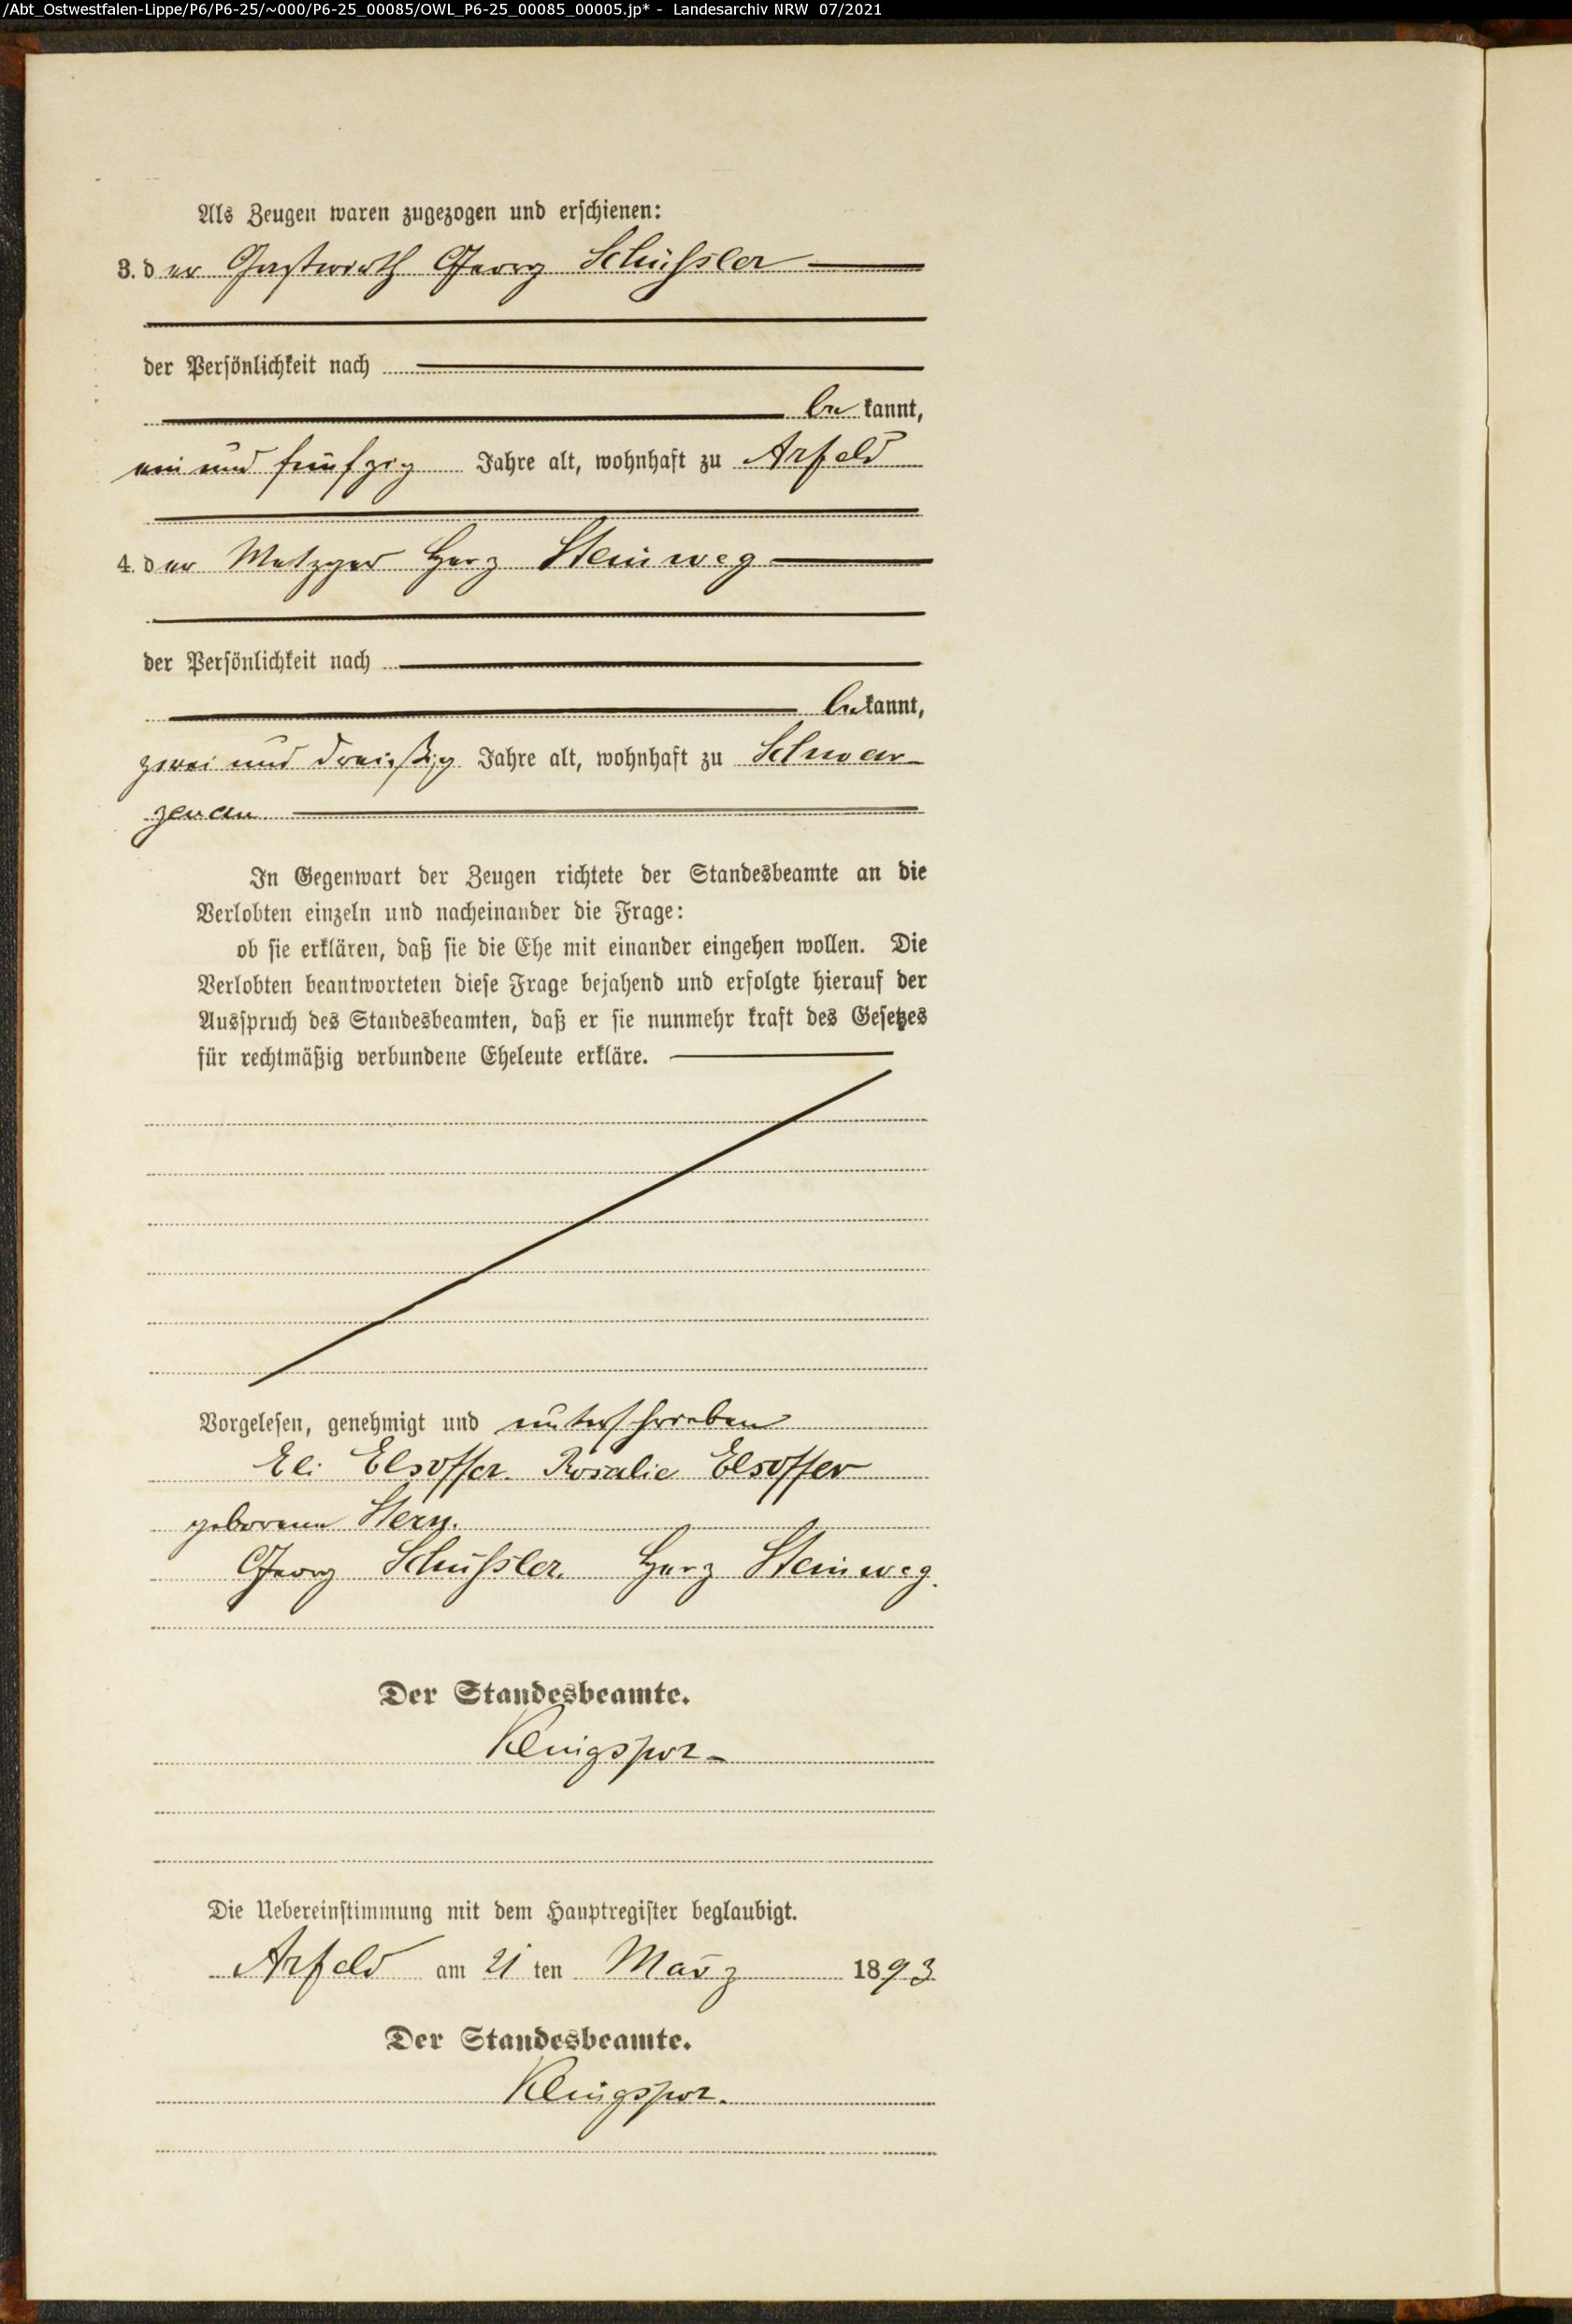 /Abt_Ostwestfalen-Lippe/P6/P6-25/~000/P6-25_00085/OWL_P6-25_00085_00005.jp* - Landesarchiv NRW 07/2021
Als Zeugen waren zugezogen und erschienen:
3. der Gastwirth Georg Schüssler
der Persönlichkeit nach
bekannt,
ein und fünfzig Jahre alt, wohnhaft zu Arfeld
4. der Metzger Herz Steinweg
der Persönlichkeit nach
bekannt,
zwei und dreißig Jahre alt, wohnhaft zu Schwar-
zenau
In Gegenwart der Zeugen richtete der Standesbeamte an die
Verlobten einzeln und nacheinander die Frage:
ob sie erklären, daß sie die Ehe mit einander eingehen wollen. Die
Verlobten beantworteten diese Frage bejahend und erfolgte hierauf der
Ausspruch des Standesbeamten, daß er sie nunmehr kraft des Gesetzes
für rechtmäßig verbundene Eheleute erkläre.
Vorgelesen, genehmigt und unterschrieben
Eli Elsoffer. Rosalie Elsoffer
geborene Stern.
Georg Schüssler. Herz Steinweg.
Der Standesbeamte.
Klingspor
Die Uebereinstimmung mit dem Hauptregister beglaubigt.
Arfeld am 21 ten März 1893
Der Standesbeamte.
Klingspor.